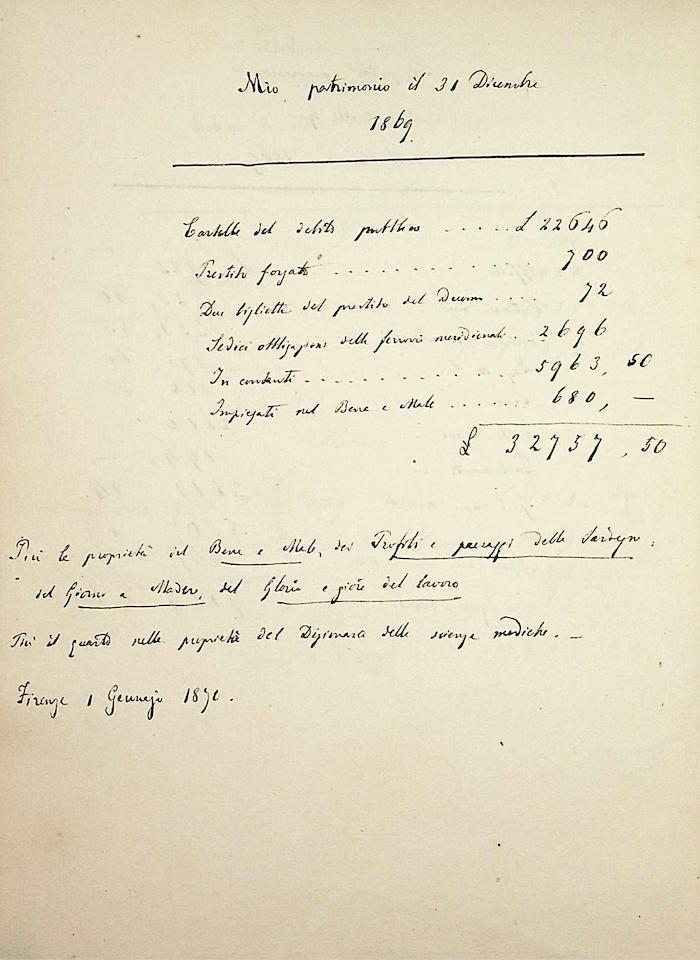 Mio patrimonio il 31 Dicembre
1869
Cartelle del debito pubblico ..... £ 22646
Prestito forzato .......... 700
Due biglietti del prestito del Duomo .... 72
Sedici obbligazioni delle ferrovie meridionali . 2696
In contanti .......... 5963, 50
Impiegati nel Bene e Male ...... 680, —
£ 32757, 50
Più la proprietà del Bene e Male, dei Profili e paesaggi della Sardegna:
del Giorno a Madera, del Gloria e gioie del lavoro
Più il quarto nella proprietà del Dizionario delle scienze mediche. —
Firenze 1 Gennajo 1870.